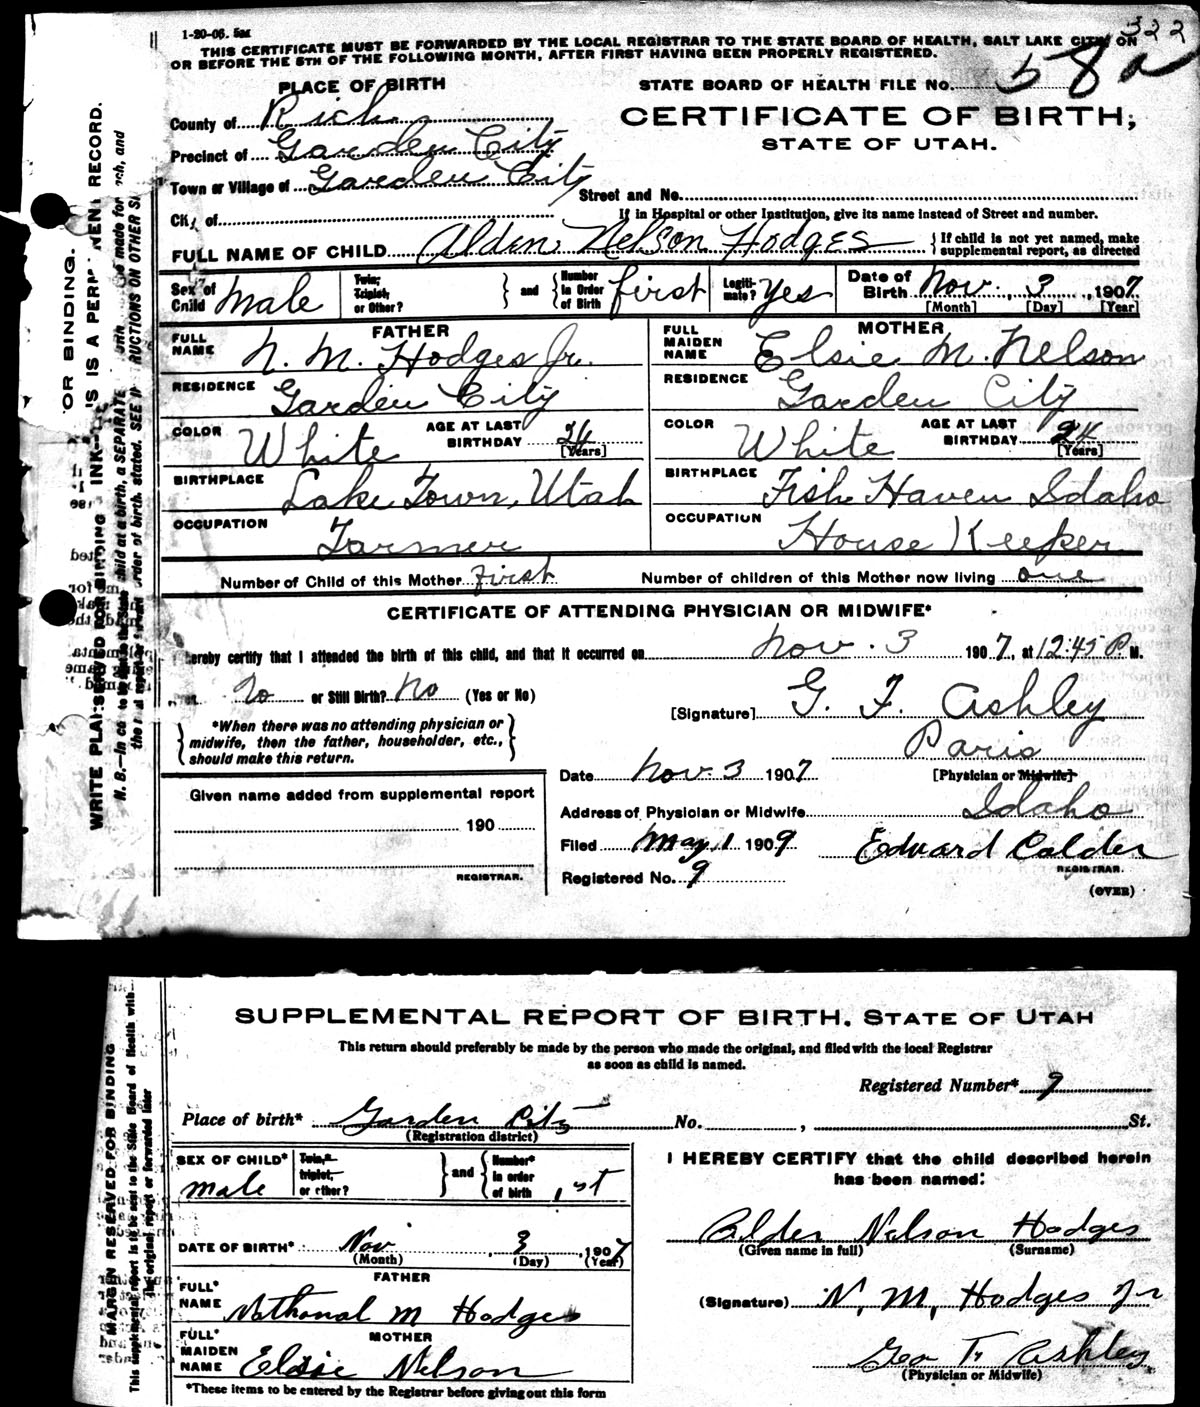 1-20-06. 5m
322
THIS CERTIFICATE MUST BE FORWARDED BY THE LOCAL REGISTRAR TO THE STATE BOARD OF HEALTH, SALT LAKE CITY, ON
OR BEFORE THE 5TH OF THE FOLLOWING MONTH, AFTER FIRST HAVING BEEN PROPERLY REGISTERED.
PLACE OF BIRTH
STATE BOARD OF HEALTH FILE No. 58a
County of Rich
CERTIFICATE OF BIRTH,
Precinct of Garden City
STATE OF UTAH.
Town or Village of Garden City
Street and No.
City of
If in Hospital or other Institution, give its name instead of Street and number.
FULL NAME OF CHILD Alden Nelson Hodges { If child is not yet named, make supplemental report, as directed
Sex of Child Male Twin, Triplet, or Other? } and { Number in Order of Birth first Legiti- mate? yes Date of Birth Nov. 3, 1907
[Month] [Day] [Year]
FATHER
FULL NAME N. M. Hodges Jr.
RESIDENCE Garden City
COLOR White AGE AT LAST BIRTHDAY 24 [Years]
BIRTHPLACE Lake Town, Utah
OCCUPATION Farmer
MOTHER
FULL MAIDEN NAME Elsie M. Nelson
RESIDENCE Garden City
COLOR White AGE AT LAST BIRTHDAY 24 [Years]
BIRTHPLACE Fish Haven Idaho
OCCUPATION House Keeper
Number of Child of this Mother first Number of children of this Mother now living one
CERTIFICATE OF ATTENDING PHYSICIAN OR MIDWIFE*
hereby certify that I attended the birth of this child, and that it occurred on Nov. 3 1907, at 12:45 P. M.
No or Still Birth? No (Yes or No)
[Signature] G. F. Ashley
*When there was no attending physician or
midwife, then the father, householder, etc.,
should make this return.
Paris
Date Nov. 3 1907 [Physician or Midwife]
Given name added from supplemental report
190
REGISTRAR.
Address of Physician or Midwife Idaho
Filed May 1 1909 Edward Calder
REGISTRAR.
Registered No. 9
(OVER)
SUPPLEMENTAL REPORT OF BIRTH. STATE OF UTAH
This return should preferably be made by the person who made the original, and filed with the local Registrar
as soon as child is named.
Registered Number* 9
Place of birth* Garden City No. , St.
(Registration district)
SEX OF CHILD* male Twin,* triplet, or other? } and { Number* in order of birth 1st
DATE OF BIRTH* Nov 3, 1907
(Month) (Day) (Year)
FATHER
FULL* NAME Nathanal M Hodges
MOTHER
FULL* MAIDEN NAME Elsie Nelson
*These items to be entered by the Registrar before giving out this form
I HEREBY CERTIFY that the child described herein
has been named:
Alden Nelson Hodges
(Given name in full) (Surname)
(Signature) N. M. Hodges Jr
Geo F. Ashley
(Physician or Midwife)
MARGIN RESERVED FOR BINDING
This supplemental report is to be sent to the State Board of Health with
the original report or forwarded later